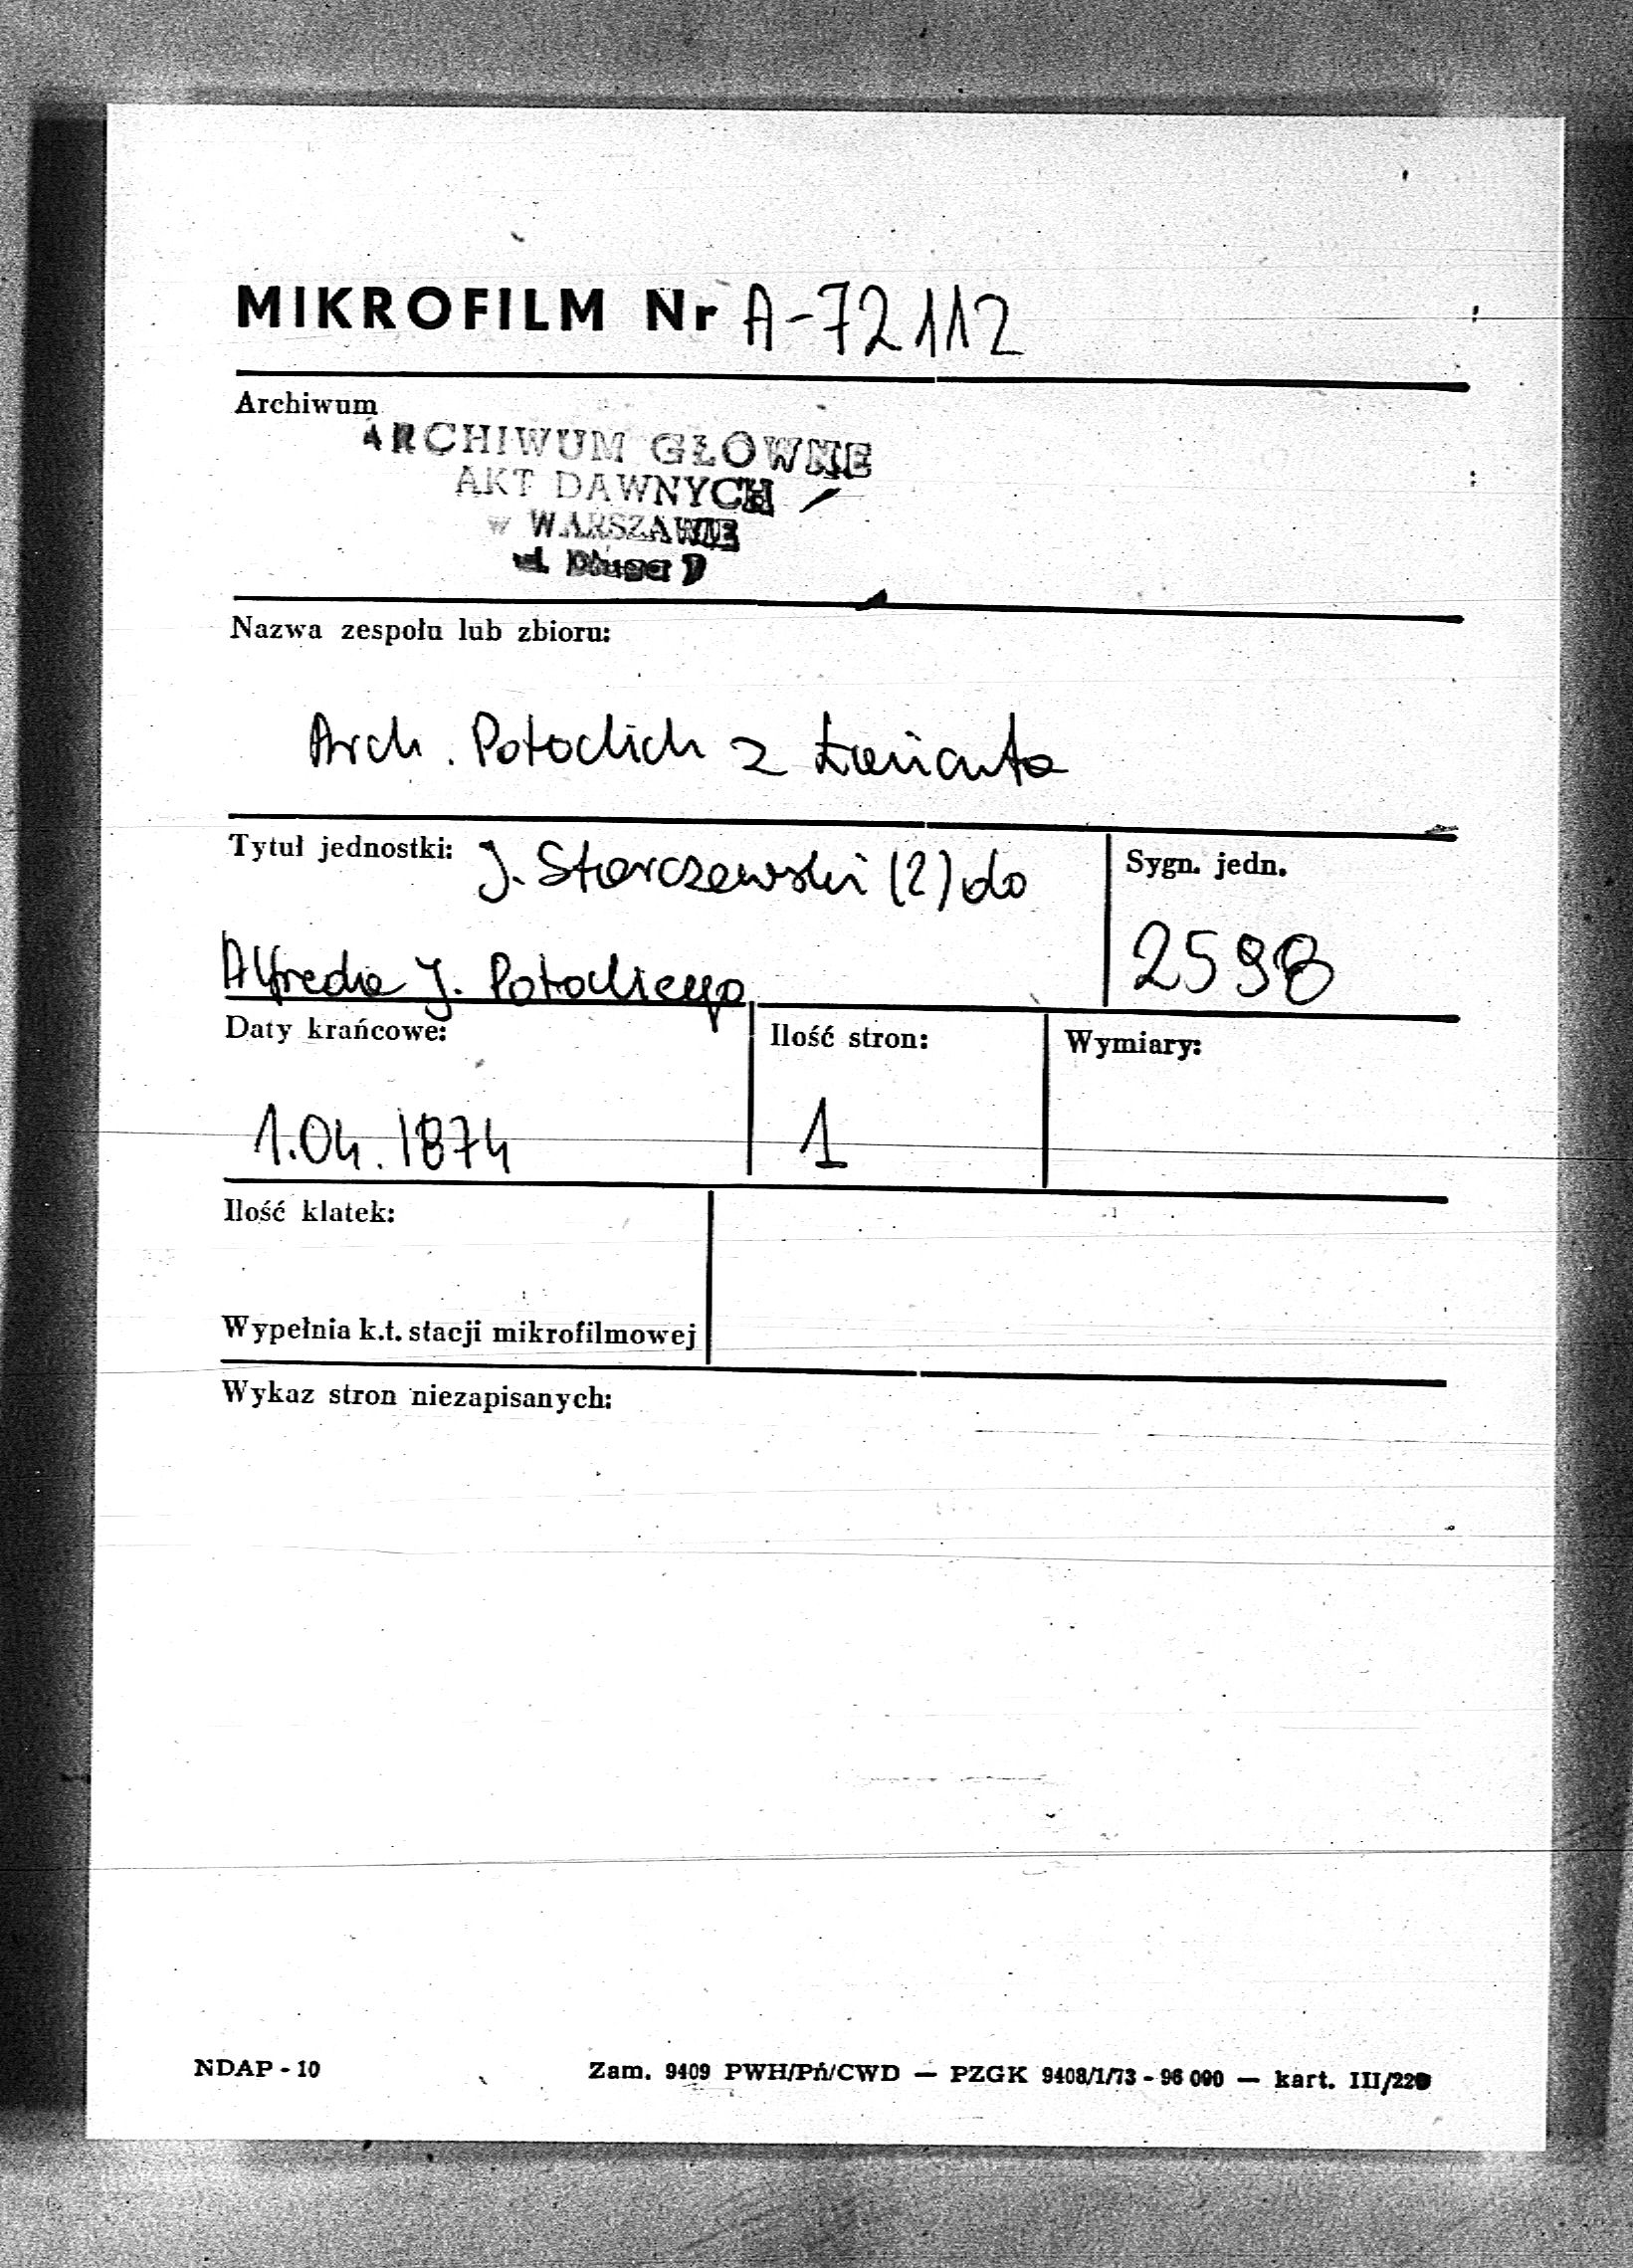 MIKROFILM Nr A-72112
Archiwum
ARCHIWUM GŁÓWNE
AKT DAWNYCH
w WARSZAWIE
ul. Długa 7
Nazwa zespołu lub zbioru:
Arch. Potockich z Łańcuta
Tytuł jednostki: J. Starczewski (?) do
Alfreda J. Potockiego
Sygn. jedn.
2598
Daty krańcowe:
1.04.1874
Ilość stron:
1
Wymiary:
Ilość klatek:
Wypełnia k.t. stacji mikrofilmowej
Wykaz stron niezapisanych:
NDAP - 10
Zam. 9409 PWH/Pń/CWD — PZGK 9408/1/73 - 96 000 — kart. III/220